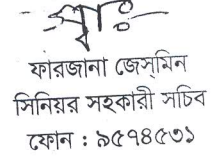 ফারজানা জেস্‌মিন
সিনিয়র সহকারী সচিব
ফোন : ৯৫৭৪৫৩১